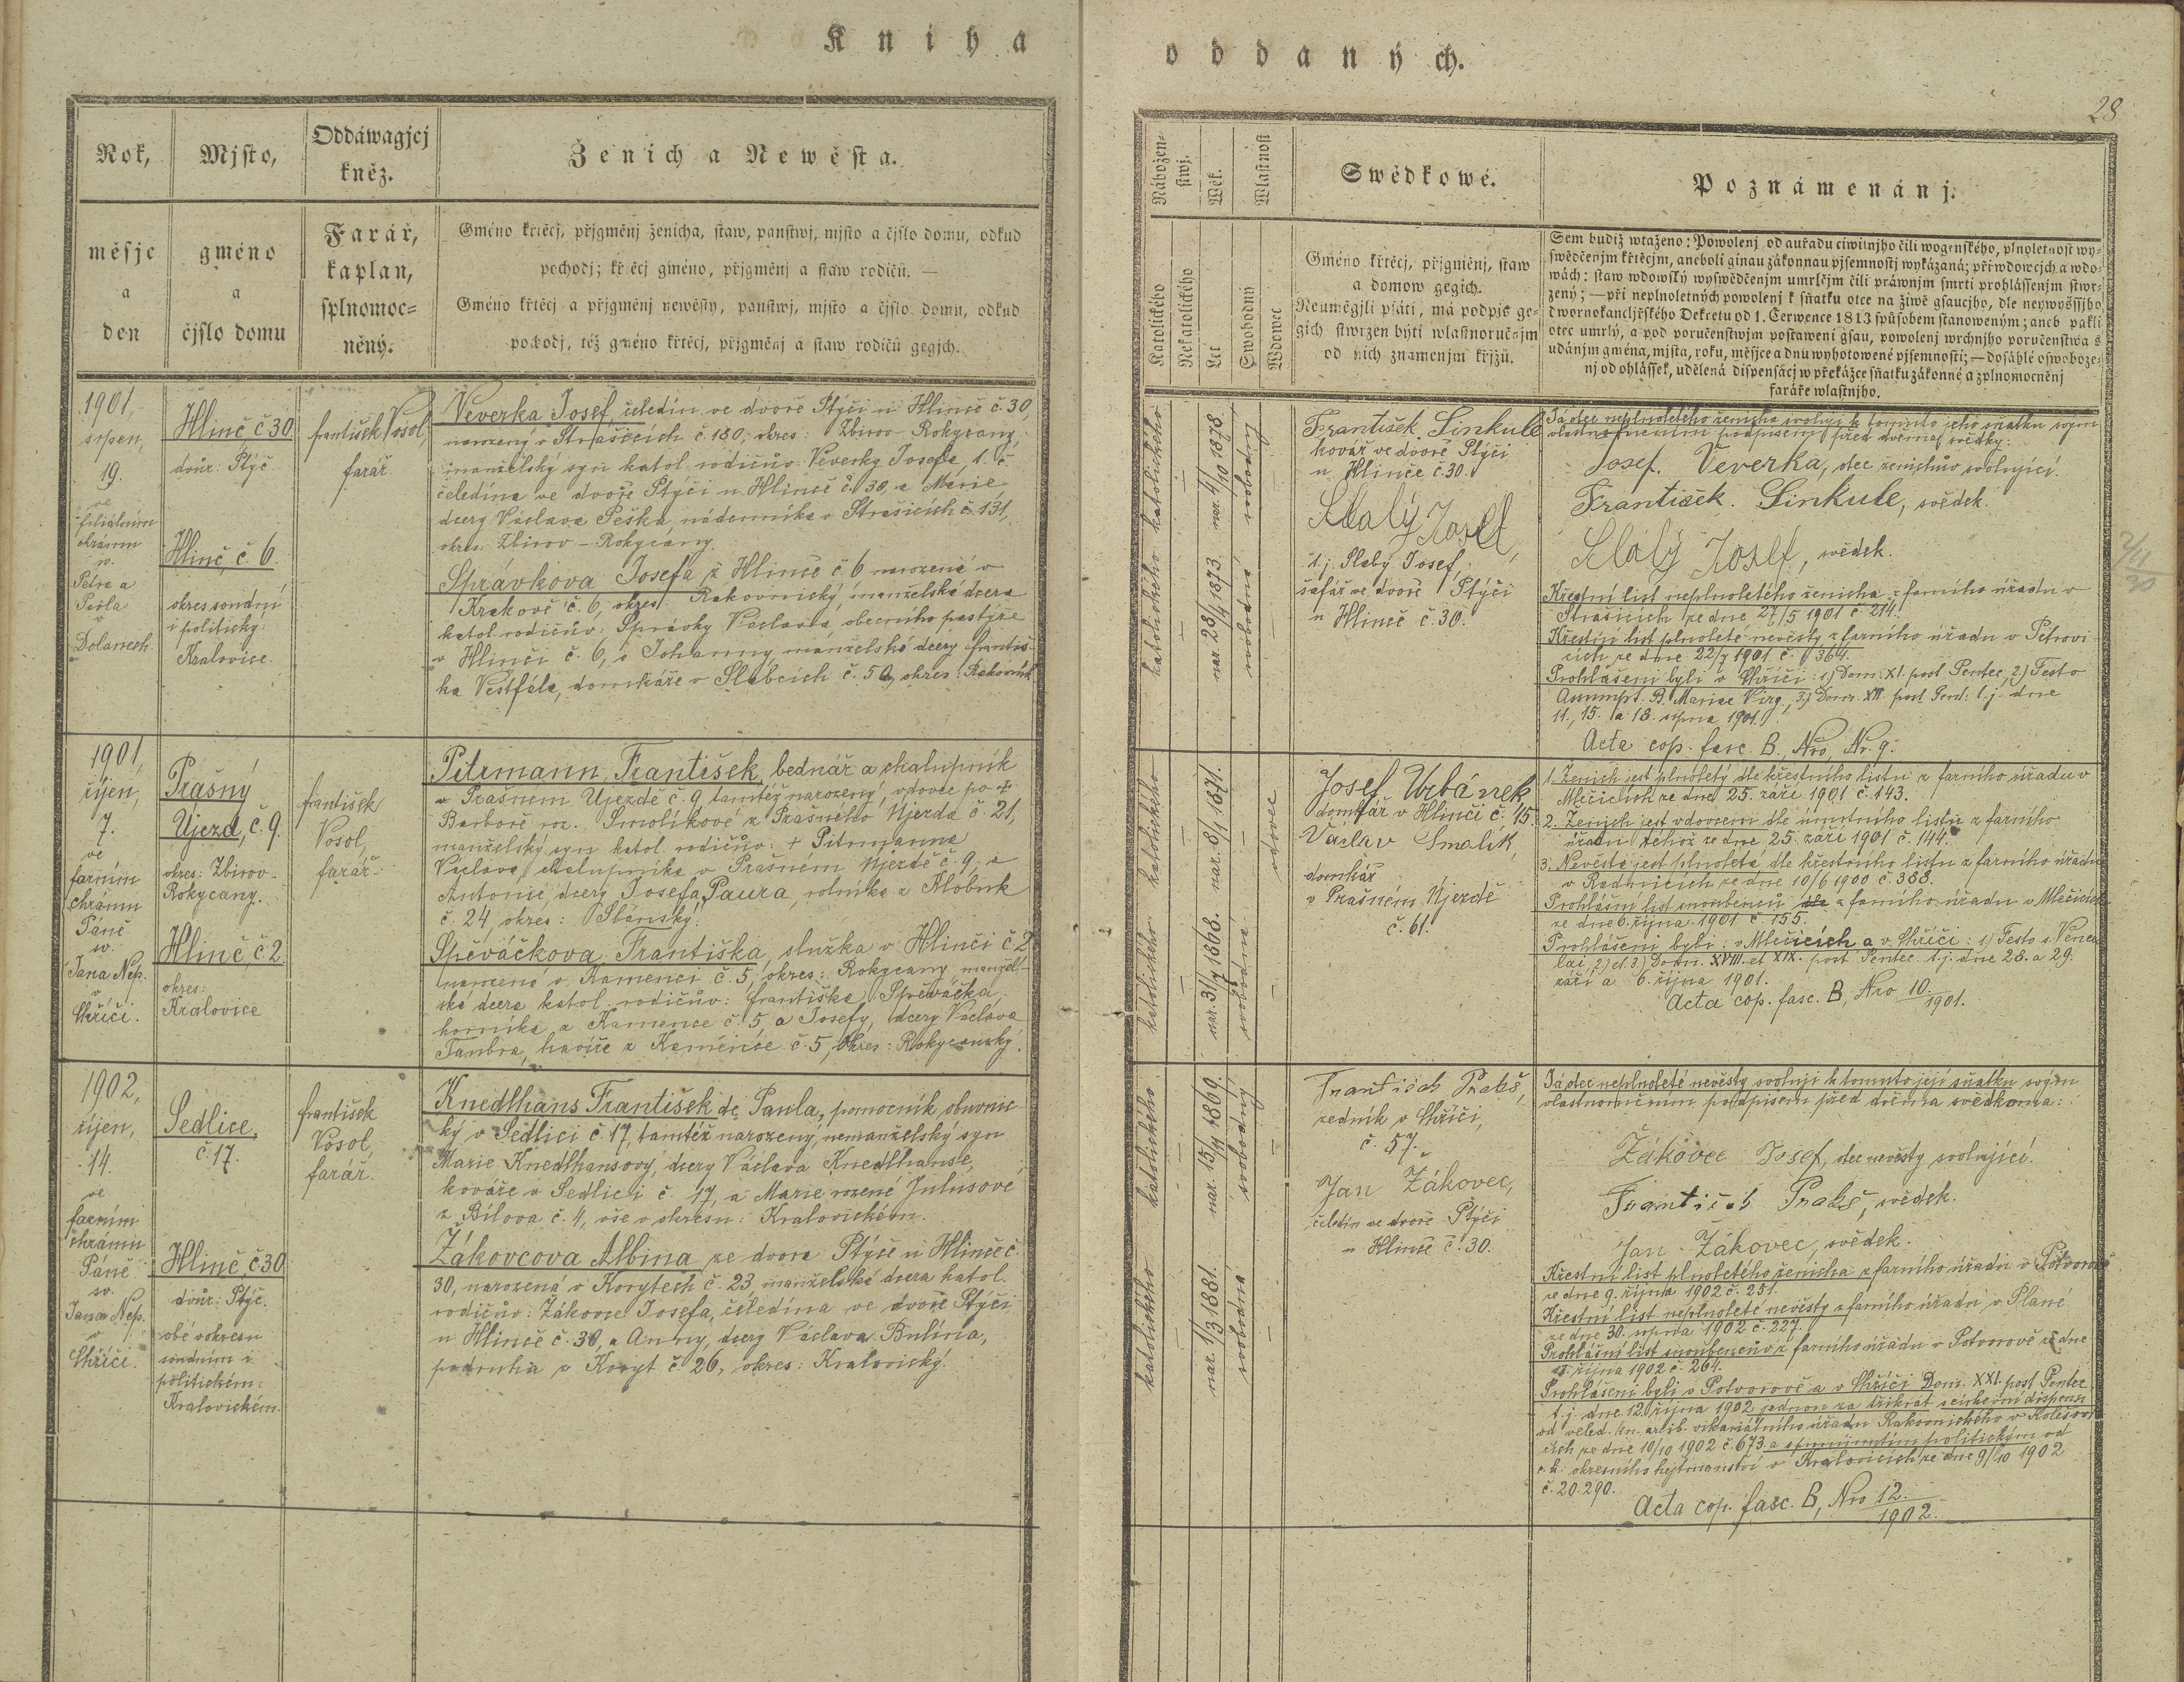 Kniha
oddaných.
28
Rok,
měsjc
a
den
Mjsto,
gméno
a
čjslo domu
Oddáwagjcj
kněz.
Farář,
kaplan,
splnomoc=
něný.
Ženich a Newěsta.
Gméno křtěcj, přjgměnj ženicha, staw, panstwj, mjsto a čjslo domu, odkud
pochodj; křtěcj gméno, přjgměnj a staw rodičů. —
Gméno křtěcj a přjgměnj newěsty, panstwj, mjsto a čjslo domu, odkud
pochodj, též gméno křtěcj, přjgměnj a staw rodičů gegjch.
Nábožen-
stwj.
Katolického
Nekatolického
Wěk.
Let
Wlastnost
Swobodný
Wdowec
Swědkowé.
Gméno křtěcj, přjgměnj, staw
a domow gegich.
Neuměgjli psáti, má podpis ge=
gich stwrzen býti wlastnoručnjm
od nich znamenjm křjžů.
Poznámenánj.
Sem budiž wtaženo: Powolenj od auřadu ciwilnjho čili wogenského, plnoletnost wy=
swědčenjm křtěcjm, aneboli ginau zákonnau pjsemnostj wykázaná; při wdowcjch a wdo=
wách: staw wdowský wyswědčenjm umrlčjm čili práwnjm smrti prohlássenjm stwr=
zený; — při neplnoletných powolenj k sňatku otce na žiwě gsaucjho, dle neywyššjho
dwornokancljřského Dekretu od 1. Čerwence 1813 spůsobem stanoweným; aneb pakli
otec umrlý, a pod poručenstwjm postaweni gsau, powolenj wrchnjho poručenstwa s
udánjm gména, mjsta, roku, měsjce a dnu wyhotowené pjsemnosti; — dosáhlé oswoboze=
nj od ohlássek, udělená dispensacj w překážce sňatku zákonné a zplnomocněnj
faráře wlastnjho.
1901,
srpen,
19.
ve
filiálním
chrámu
sv.
Petra a
Pavla
v
Dolanech.
Hlinč, č 30
dvůr: Ptýč.
Hlinč, č 6.
okres soudní
i politický:
Kralovice.
František Vosol,
farář.
Veverka Josef, čeledín ve dvoře Ptýči u Hlinče č. 30,
narozený v Strašicích č 180, okres: Zbirov - Rokycany,
manželský syn katol. rodičův: Veverky Josefa, t. č.
čeledína ve dvoře Ptýči u Hlinče č. 30, a Marie,
dcery Václava Peška, nádenníka v Strašicích č 131,
okres: Zbirov - Rokycany.
Správkova Josefa z Hlinče č. 6 narozená v
Krakově č. 6, okres: Rakovnický, manželská dcera
katol. rodičův: Správky Václava, obecního pastýře
v Hlinči č. 6, a Johanny manželské dcery Františ-
ka Vestfála, domkáře v Slabcích č. 50, okres: Rakovník
katolického katolického
nar. 28/4 1873. nar. 4/10 1878.
svobodná svobodný
František Sinkule
kovář ve dvoře Ptýči
u Hlinče č. 30.
Slabý Josef,
t. j. Slabý Josef,
šafář ve dvoře Ptýči
u Hlinče č. 30.
Já otec neplnoletého ženicha svoluji k tomuto jeho sňatku svým
vlastnoručním podpisem před dvěma svědky:
Josef. Veverka, otec ženichův svolující.
František. Sinkule, svědek.
Slabý Josef, svědek.
Křestní list neplnoletého ženicha z farního úřadu v
Strašicích ze dne 27/5 1901 č. 214.
Křestní list plnoleté nevěsty z farního úřadu v Petrovi-
cích ze dne 22/7 1901 č. 364.
Prohlášeni byli v Chříči: 1) Dom: XI. post Pentec, 2) Festo
Assumpt. B. Mariae Virg., 3) Dom. XII. post Pent: t. j. dne
11., 15. a 18. srpna 1901.
Acta cop. fasc. B., Nro, Nr. 9.
2/11
30
1901,
říjen,
7.
ve
farním
chrámu
Páně
sv.
Jana Nep.
v
Chříči.
Prašný
Újezd, č. 9.
okres: Zbirov-
Rokycany.
Hlinč, č 2.
okres:
Kralovice
František
Vosol,
farář.
Pitrmann, František, bednář a chalupník
v Prašném Újezdě č. 9, tamtéž narozený, vdovec po +
Barboře roz. Smolíkové z Prašného Újezda č. 21,
manželský syn katol. rodičův: + Pitrmanna
Václava, chalupníka v Prašném Újezdě č. 9, a
Antonie, dcery Josefa Paura, rolníka z Klobuk
č. 24, okres: Slánský.
Spěváčkova Františka, služka v Hlinči č 2
narozená v Kamenci č. 5, okres: Rokycany, manžel-
ská dcera katol. rodičův: Františka Spěváčka,
horníka z Kamence č. 5, a Josefy, dcery Václava
Taubra, havíře z Kamence č. 5, okres: Rokycanský.
katolického katolického
nar. 31/7 1868. nar. 8/1 1871.
svobodná
vdovec
Josef Urbánek,
domkář v Hlinči č. 15.
Václav Smolík,
domkář
v Prašném Újezdě
č. 61.
1. Ženich jest plnoletý dle křestního listu z farního úřadu v
Mlečicích ze dne 25. září 1901 č. 143.
2. Ženich jest vdovcem dle úmrtního listu z farního
úřadu téhož ze dne 25. září 1901 č. 144.
3. Nevěsta jest plnoletá dle křestního listu z farního úřadu
v Radnicích ze dne 10/6 1900 č. 388.
Prohlášní list snoubenců z farního úřadu v Mlečicích
ze dne 6. října 1901 č. 155.
Prohlášeni byli: v Mlečicích a v Chříči: 1) Festo s. Vence-
slai, 2) et 3) Dom. XVIII. et XIX. post Pentec. t. j. dne 28. a 29.
září a 6. října 1901.
Acta cop. fasc. B, Nro 10./1901.
1902,
říjen,
14.
ve
farním
chrámu
Páně
sv.
Jana Nep.
v
Chříči.
Sedlice,
č. 17.
Hlinč, č 30
dvůr: Ptýč.
obé v okresu
soudním i
politickém:
Kralovickém.
František
Vosol,
farář.
Knedlhans František de Paula, pomocník obuvnic-
ký v Sedlici č. 17, tamtéž narozený, nemanželský syn
Marie Knedlhansovy, dcery Václava Knedlhanse,
kováře v Sedlici č. 17, a Marie rozené Julusové
z Bílova č. 4, vše v okresu: Kralovickém.
Žákovcova Albina ze dvora Ptýče u Hlinče č.
30, narozená v Korytech č. 23, manželská dcera katol.
rodičův: Žákovce Josefa, čeledína ve dvoře Ptýči
u Hlinče č. 30, a Anny, dcery Václava Bulína,
podruha z Koryt č. 26, okres: Kralovický.
katolického katolického
nar. 1/3 1881. nar. 15/11 1869.
svobodná svobodný
František Prabš,
zedník v Chříči,
č. 57.
Jan Žákovec,
čeledín ve dvoře Ptýči
u Hlinče č. 30.
Já otec neplnoleté nevěsty svoluji k tomuto její sňatku svým
vlastnoručním podpisem před dvěma svědkoma:
Žákovec Josef, otec nevěsty svolující.
František Prabš, svědek.
Jan Žákovec, svědek.
Křestní list plnoletého ženicha z farního úřadu v Potvorově
ze dne 9. října 1902 č. 251.
Křestní list neplnoleté nevěsty z farního úřadu v Plané
ze dne 30. srpna 1902 č. 227.
Prohlášní list snoubencův z farního úřadu v Potvorově ze dne
října 1902 č. 264.
Prohlášeni byli v Potvorově a v Chříči Dom. XXI. post Pentec.
t. j. dne 12. října 1902 jednou za třikrát s církevní dispensí
od veled. kn. arcib. vikariátního úřadu Rakovnického v Kolešovi-
cích ze dne 10/10 1902 č. 673 a s prominutím politickým od
c. k. okresního hejtmanství v Kralovicích ze dne 9/10 1902
č. 20.290.
Acta cop. fasc. B, Nro 12./1902.